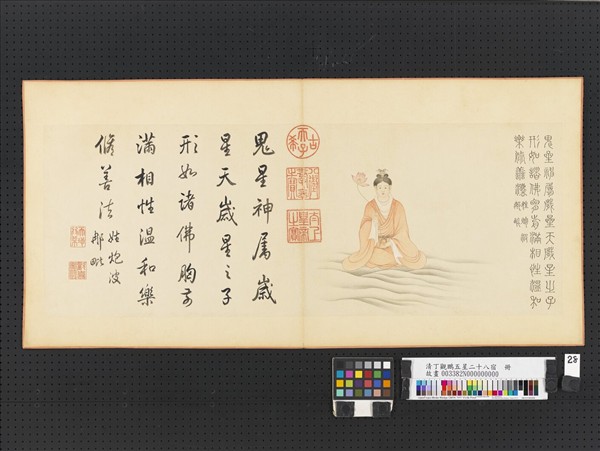 鬼星神屬歲星天歲星之子
形如諸佛胸前滿相性溫和
樂脩善法
古希天子
太上皇帝之寶
鬼星神屬歲
星天歲星之子
形如諸佛胸前
滿相性溫和樂
脩善法
姓炮波
那毗
清丁觀鵬五星二十八宿 冊
故畫 003382N000000000
28